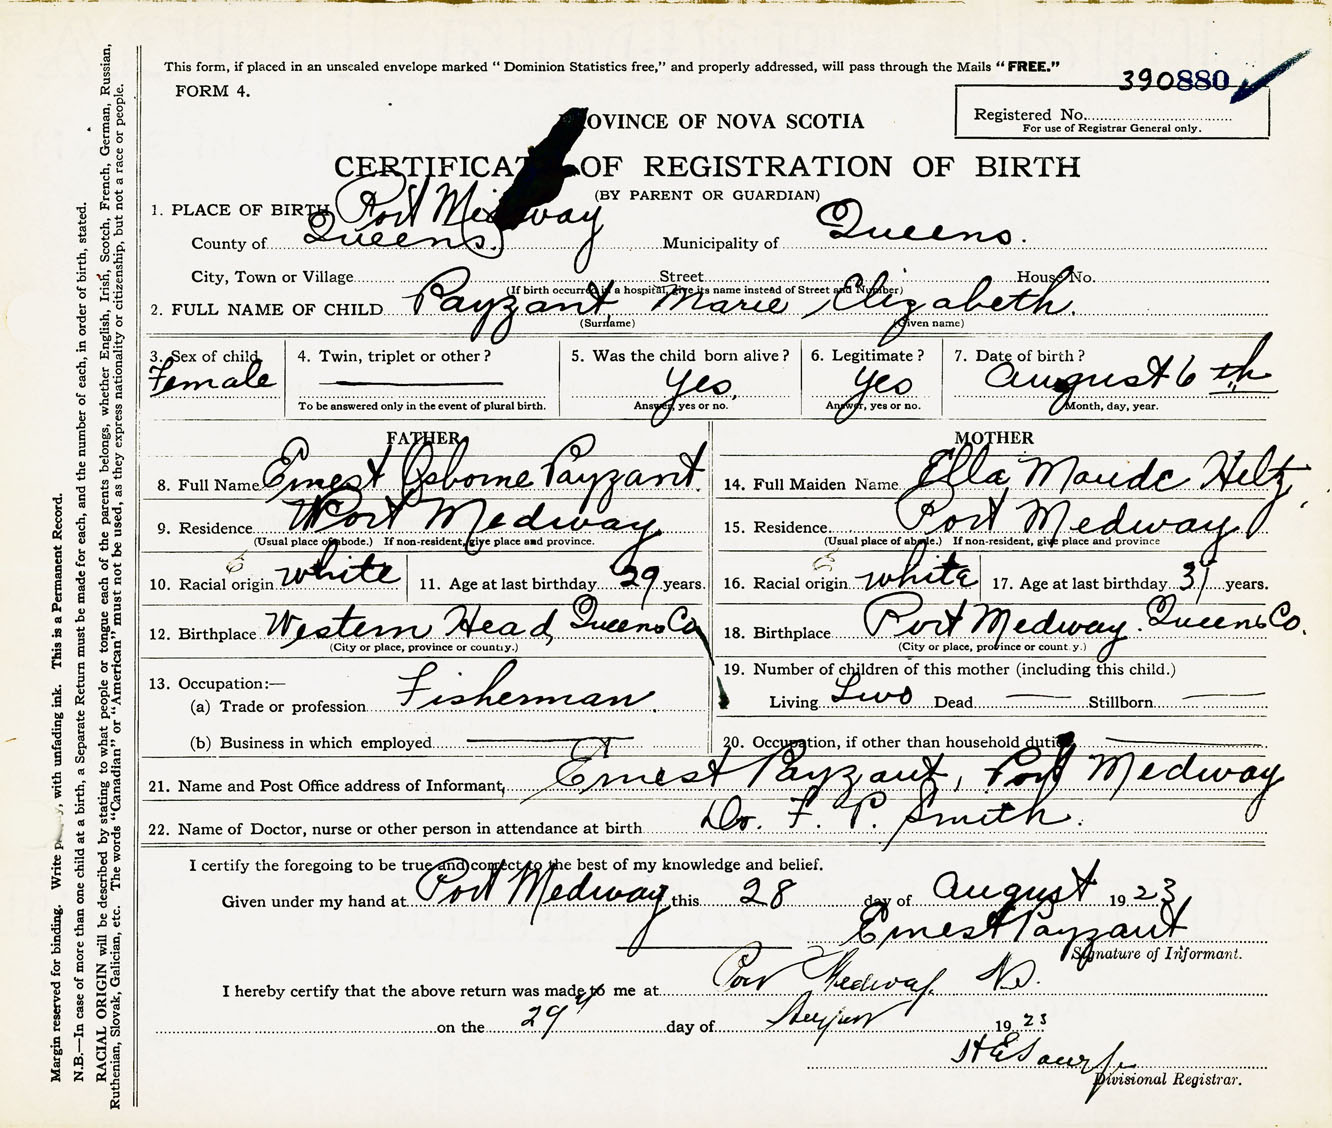 This form, if placed in an unsealed envelope marked "Dominion Statistics free," and properly addressed, will pass through the Mails "FREE."
390880
FORM 4.
Registered No.
For use of Registrar General only.
PROVINCE OF NOVA SCOTIA
CERTIFICATE OF REGISTRATION OF BIRTH
(BY PARENT OR GUARDIAN)
1. PLACE OF BIRTH Port Medway
County of Queens. Municipality of Queens.
City, Town or Village Street House No.
(If birth occurred in a hospital, give its name instead of Street and Number)
2. FULL NAME OF CHILD Payzant Marie Elizabeth.
(Surname) (Given name)
3. Sex of child Female
4. Twin, triplet or other?
To be answered only in the event of plural birth.
5. Was the child born alive? Yes,
Answer, yes or no.
6. Legitimate? Yes
Answer, yes or no.
7. Date of birth? August 6 th
Month, day, year.
FATHER
8. Full Name Ernest Osborne Payzant.
9. Residence Port Medway
(Usual place of abode.) If non-resident, give place and province.
10. Racial origin white 11. Age at last birthday 29 years.
12. Birthplace Western Head, Queens Co.
(City or place, province or country.)
13. Occupation:—
(a) Trade or profession Fisherman.
(b) Business in which employed
MOTHER
14. Full Maiden Name Ella Maude Heltz
15. Residence Port Medway
(Usual place of abode.) If non-resident, give place and province
16. Racial origin white 17. Age at last birthday 31 years.
18. Birthplace Port Medway. Queens Co.
(City or place, province or country.)
19. Number of children of this mother (including this child.)
Living Two Dead Stillborn
20. Occupation, if other than household duties
21. Name and Post Office address of Informant, Ernest Payzant, Port Medway
22. Name of Doctor, nurse or other person in attendance at birth Dr. F. P. Smith.
I certify the foregoing to be true and correct to the best of my knowledge and belief.
Given under my hand at Port Medway this 28 day of August 1923
Ernest Payzant
Signature of Informant.
I hereby certify that the above return was made to me at Port Medway
on the 29 day of August 1923
Divisional Registrar.
Margin reserved for binding. Write with unfading ink. This is a Permanent Record.
N.B.—In case of more than one child at a birth, a Separate Return must be made for each, and the number of each, in order of birth, stated.
RACIAL ORIGIN will be described by stating to what people or tongue each of the parents belongs, whether English, Irish, Scotch, French, German, Russian,
Ruthenian, Slovak, Galician, etc. The words "Canadian" or "American" must not be used, as they express nationality or citizenship, but not a race or people.